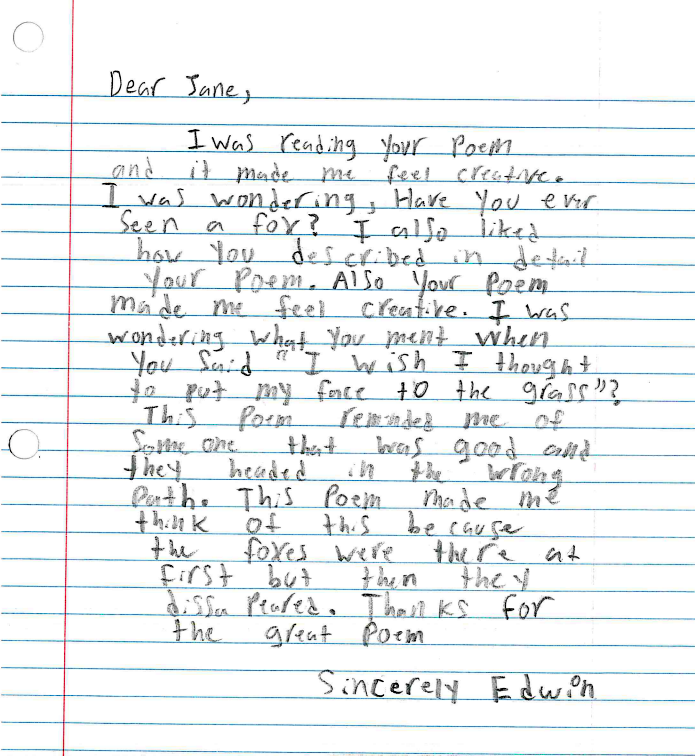 Dear Jane,
I was reading your Poem
and it made me feel creative.
I was wondering, Have you ever
Seen a fox? I also liked
how you described in detail
Your Poem. Also your Poem
made me feel creative. I was
wondering what you ment when
you Said " I wish I thought
to put my face to the grass"?
This Poem reminded me of
Some one that was good and
they headed in the wrong
Path. This Poem made me
think of this because
the foxes were there at
first but then they
dissa Peared. Thanks for
the great Poem
Sincerely Edwin